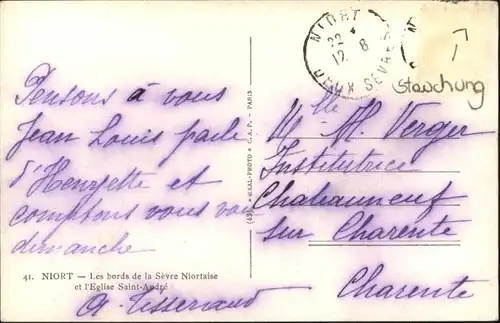 Pensons à vous
Jean Louis parle
d'Henryette et
comptons vous voir
dimanche
A. Tisserand
41. NIORT — Les bords de la Sèvre Niortaise
et l'Eglise Saint-André
REAL-PHOTO C.A.P. - PARIS
NIORT
22 4
12 8
DEUX SÈVRES
Stauchung
Mlle M. Verger
Institutrice
Chateauneuf
sur Charente
Charente